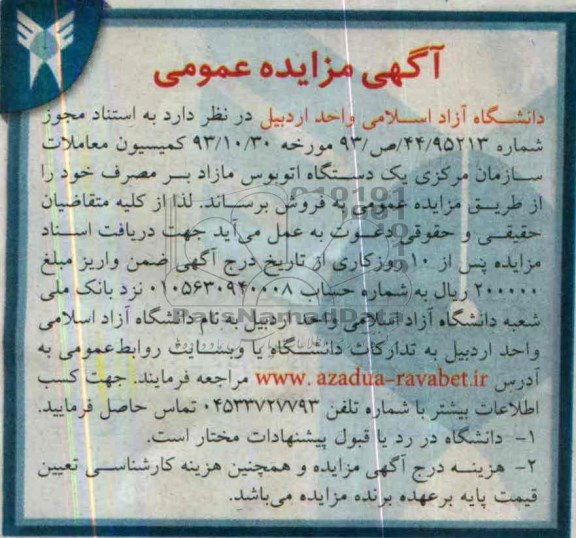 آگهی مزایده عمومی
دانشگاه آزاد اسلامی واحد اردبیل در نظر دارد به استناد مجوز
شماره ۹۳/ص/۴۴/۹۵۲۱۳ مورخه ۹۳/۱۰/۳۰ کمیسیون معاملات
سازمان مرکزی یک دستگاه اتوبوس مازاد بر مصرف خود را
از طریق مزایده عمومی به فروش برساند. لذا از کلیه متقاضیان
حقیقی و حقوقی دعوت به عمل می‌آید جهت دریافت اسناد
مزایده پس از ۱۰ روزکاری از تاریخ درج آگهی ضمن واریز مبلغ
۲۰۰۰۰۰ ریال به شماره حساب ۰۱۰۵۶۳۰۹۴۰۰۰۸ نزد بانک ملی
شعبه دانشگاه آزاد اسلامی واحد اردبیل به نام دانشگاه آزاد اسلامی
واحد اردبیل به تدارکات دانشگاه یا وبسایت روابط‌عمومی به
آدرس www. azadua-ravabet.ir مراجعه فرمایند. جهت کسب
اطلاعات بیشتر با شماره تلفن ۰۴۵۳۳۷۲۷۷۹۳ تماس حاصل فرمایید.
۱- دانشگاه در رد یا قبول پیشنهادات مختار است.
۲- هزینه درج آگهی مزایده و همچنین هزینه کارشناسی تعیین
قیمت پایه برعهده برنده مزایده می‌باشد.
ParsNamadData